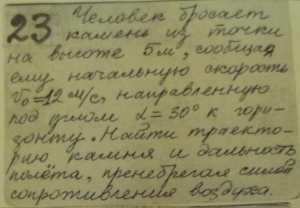 23 Человек бросает
камень из точки
на высоте 5м, сообщая
ему начальную скорость
V₀=12 м/с, направленную
под углом α=30° к гори-
зонту. Найти траекто-
рию камня и дальность
полёта, пренебрегая силой
сопротивления воздуха.